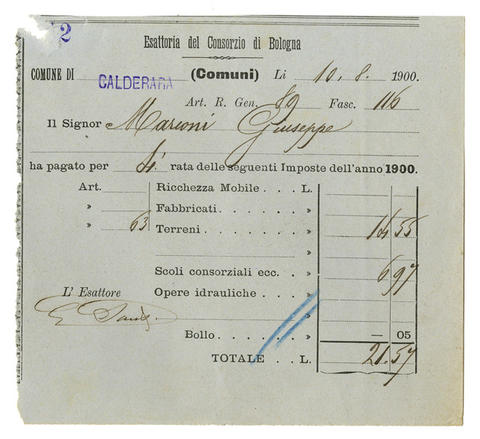 2
Esattoria del Consorzio di Bologna
COMUNE DI CALDERARA (Comuni) Lì 10. 8. 1900.
Art. R. Gen. 89 Fasc. 116
Il Signor Marconi Giuseppe
ha pagato per 4ª rata delle seguenti Imposte dell'anno 1900.
Art. Ricchezza Mobile . . . L.
» Fabbricati. . . . . . »
» 63 Terreni . . . . . . . » 14 55
Scoli consorziali ecc. . »
6 97
L' Esattore Opere idrauliche . . . . »
Bollo . . . . » — 05
TOTALE . . L. 21.57